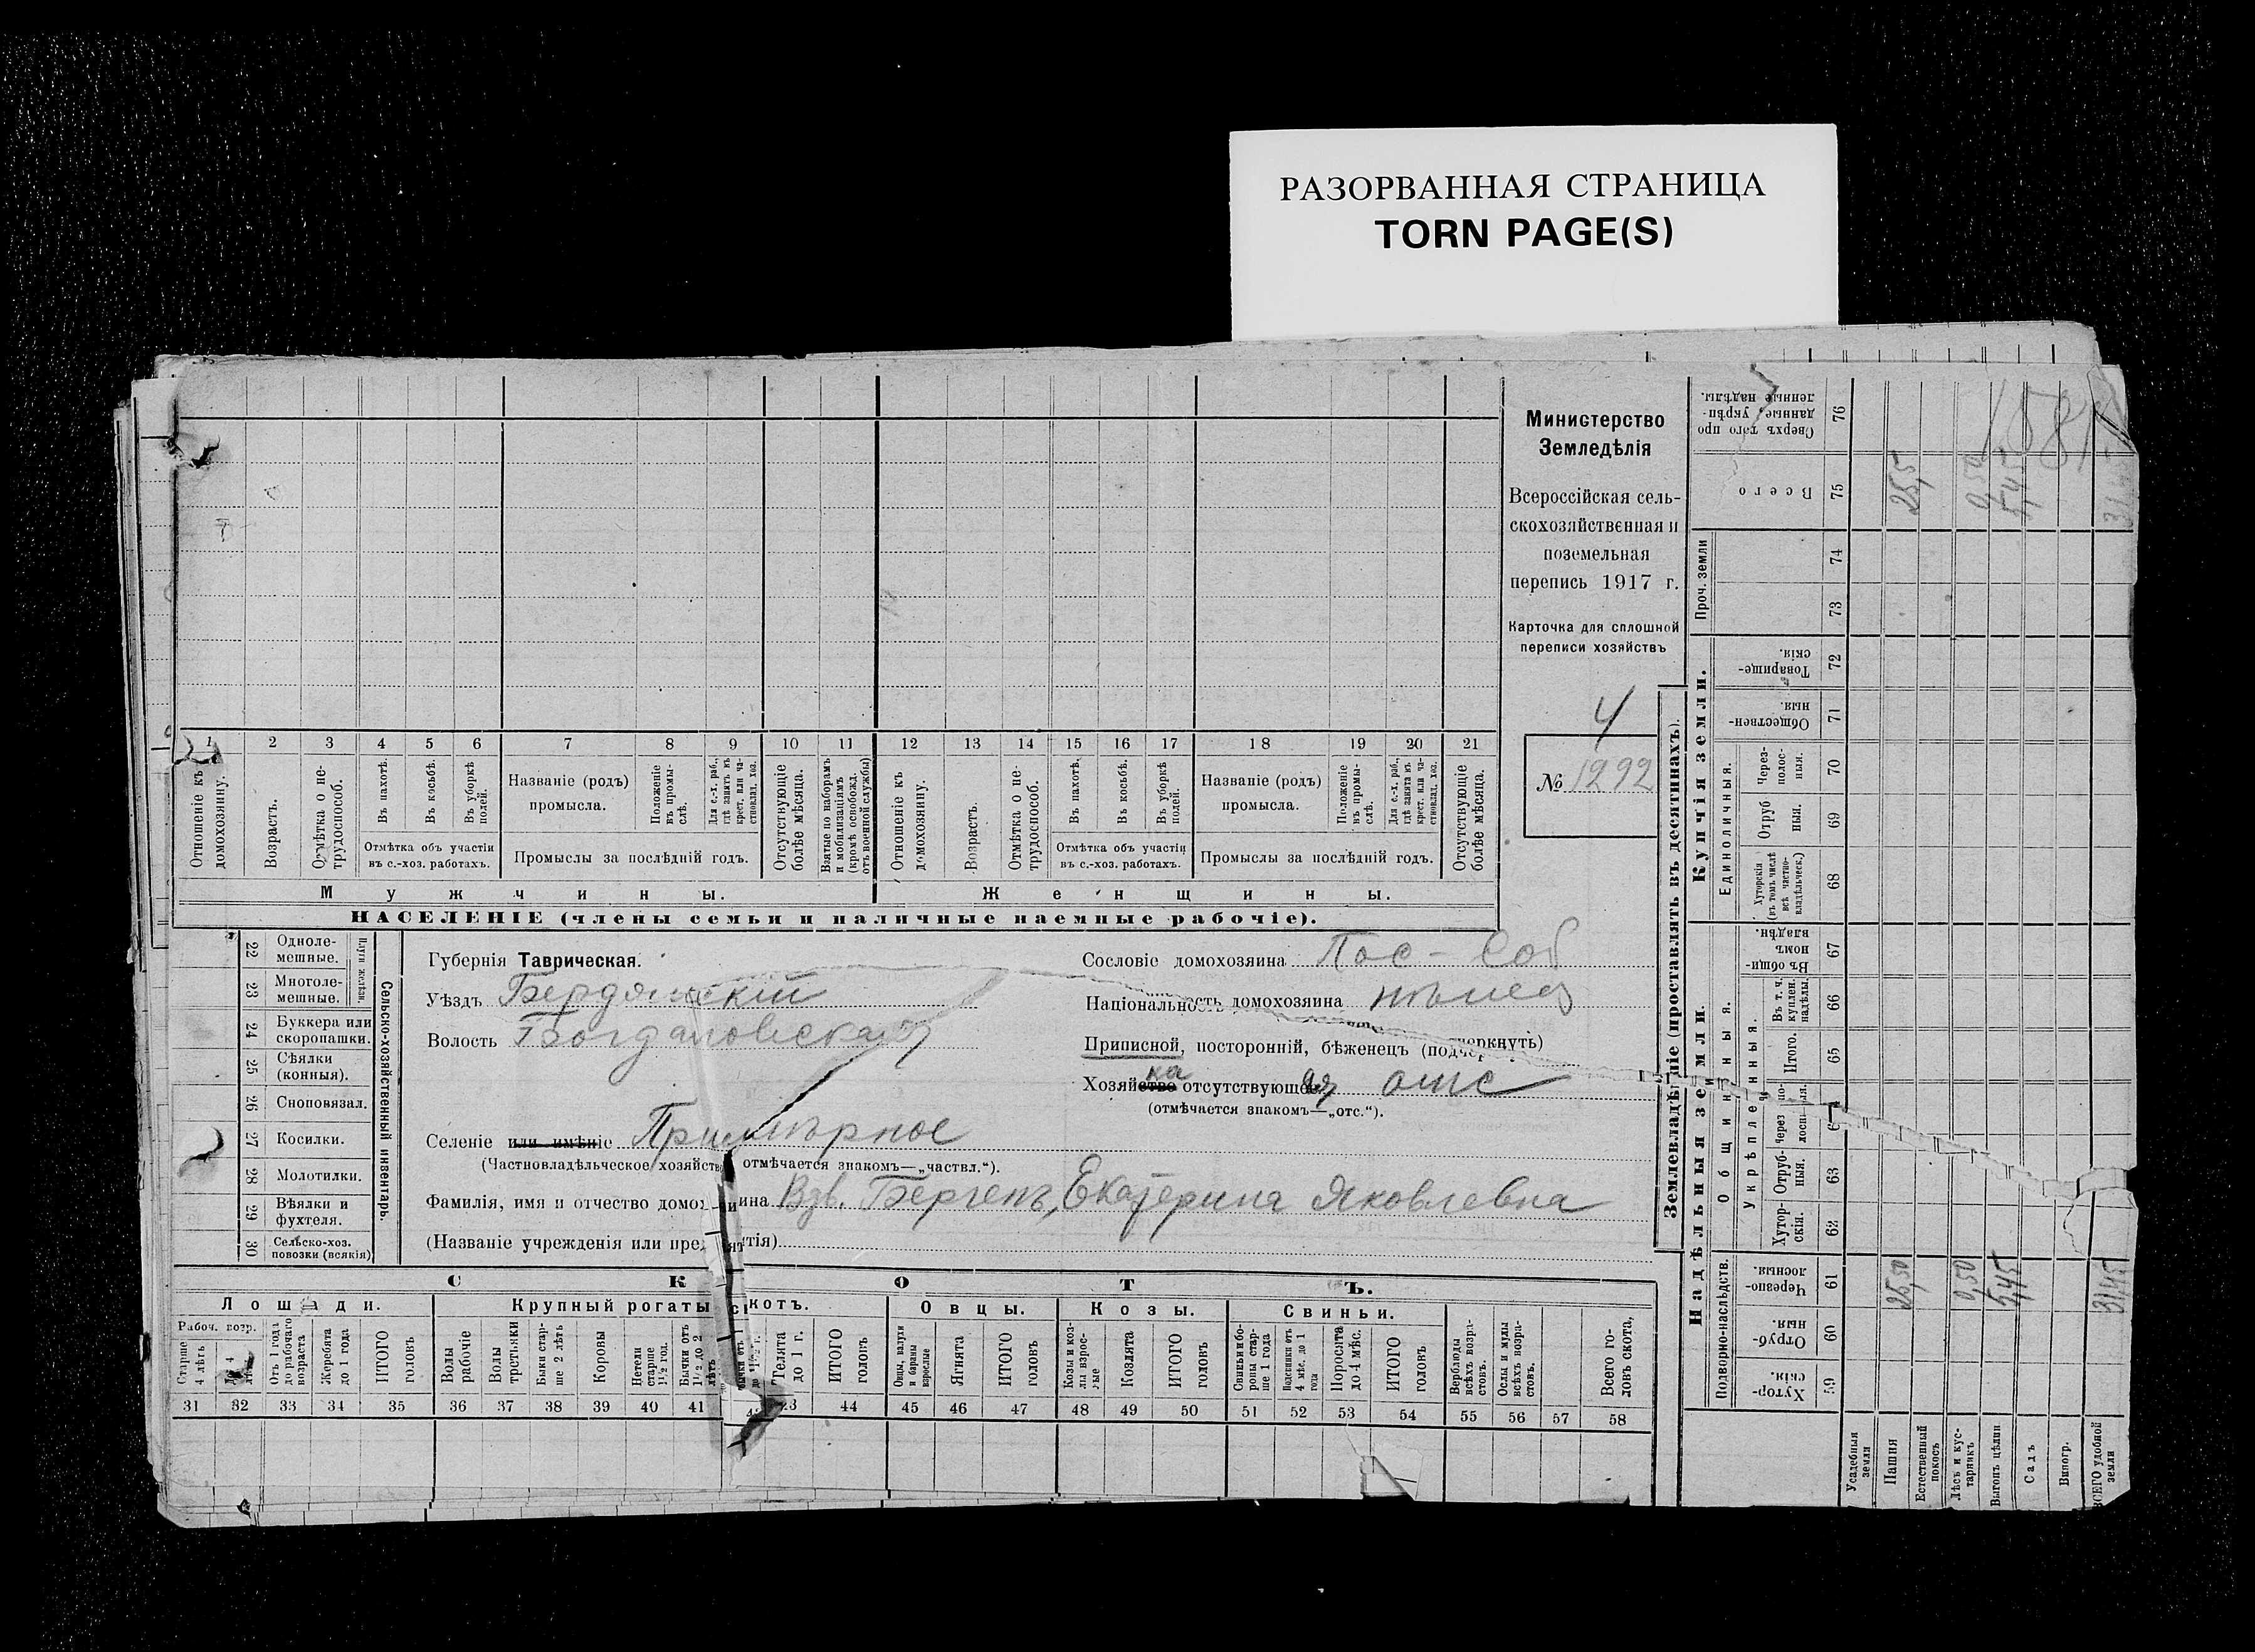 РАЗОРВАННАЯ СТРАНИЦА
TORN PAGE(S)
Министерство
Земледѣлія
Всероссійская сель-
скохозяйственная и
поземельная
перепись 1917 г.
Карточка для сплошной
переписи хозяйствъ
4
№ 1292
1 2 3 4 5 6 7 8 9 10 11 12 13 14 15 16 17 18 19 20 21
Отношеніе къ домохозяину.
Возрастъ.
Отмѣтка о не-трудоспособ.
Въ пахотѣ.
Въ косьбѣ.
Въ уборкѣ полей.
Отмѣтка объ участіи
въ с.-хоз. работахъ.
Названіе (родъ)
промысла.
Положеніе въ промы-слѣ.
Для с.-х. раб., гдѣ занятъ въ крест. или ча-стновлад. хоз.
Промыслы за послѣдній годъ.
Отсутствующіе болѣе мѣсяца.
Взятые по наборамъ и мобилизаціямъ (кромѣ освобожд. отъ военной службы)
Отношеніе къ домохозяину.
Возрастъ.
Отмѣтка о не-трудоспособ.
Въ пахотѣ.
Въ косьбѣ.
Въ уборкѣ полей.
Отмѣтка объ участіи
въ с.-хоз. работахъ.
Названіе (родъ)
промысла.
Положеніе въ промы-слѣ.
Для с.-х. раб., гдѣ занята въ крест. или ча-стновлад. хоз.
Промыслы за послѣдній годъ.
Отсутствующіе болѣе мѣсяца.
Мужчины.
Женщины.
НАСЕЛЕНІЕ (члены семьи и наличные наемные рабочіе).
22 Одноле-мешные.
23 Многоле-мешные.
Плуги желѣзн.
24 Буккера или скоропашки.
25 Сѣялки (конныя).
26 Сноповязал.
27 Косилки.
28 Молотилки.
29 Вѣялки и фухтеля.
30 Сельско-хоз. повозки (всякія)
Сельско-хозяйственный инвентарь.
Губернія Таврическая.
Уѣздъ Бердянскій
Волость Богдановская
Селеніе или имѣніе Примѣрное
(Частновладѣльческое хозяйство отмѣчается знакомъ—„частвл.“).
Сословіе домохозяина Пос - Соб
Національность домохозяина нѣмец
Приписной, посторонній, бѣженецъ (подчеркнуть)
Хозяйка отсутствующая отс
(отмѣчается знакомъ—„отс.“).
Фамилія, имя и отчество домохозяина Вдв. Бергенъ, Екатерина Яковлевна
(Названіе учрежденія или предпріятія)
СКОТЪ.
Лошади.
Крупный рогатый скотъ.
Овцы.
Козы.
Свиньи.
Рабоч. возр.
Старше 4 лѣтъ
Отъ 1 года до рабочаго возраста
Жеребята до 1 года
ИТОГО головъ
Волы рабочіе
Волы третьяки
Быки стар-ше 2 лѣтъ
Коровы
Нетели старше 1½ год.
Бычки отъ 1½ до 2 лѣтъ
Телята до 1 г.
ИТОГО головъ
Овцы, валухи и бараны взрослые
Ягнята
ИТОГО головъ
Козы и коз-лы взрос-лые
Козлята
ИТОГО головъ
Свиньи и бо-ровы стар-ше 1 года
Подсвинки отъ 4 мѣс. до 1 года
Поросята до 4 мѣс.
ИТОГО головъ
Верблюды всѣхъ возра-стовъ.
Ослы и мулы всѣхъ возра-стовъ.
Всего го-ловъ скота,
31 32 33 34 35 36 37 38 39 40 41 43 44 45 46 47 48 49 50 51 52 53 54 55 56 57 58
Землевладѣніе (проставлять въ десятинахъ).
Надѣльныя земли.
Купчія земли.
Проч. земли
Подворно-наслѣдств.
Общинныя.
Укрѣпленныя.
Единоличныя.
Хутор-скія. 59
Отруб-ныя. 60
Черезпо-лосныя. 61
Хутор-скія. 62
Отруб-ныя. 63
Итого. 65
Въ т. ч. куплен. надѣлы. 66
Въ общин-номъ владѣн. 67
Хуторскія (въ томъ числѣ всѣ частно-владѣльческ.) 68
Отруб ныя. 69
Через-полос-ныя. 70
Обществен-ныя. 71
Товарище-скія. 72
73
74
Всего 75
Сверхъ того про данные укрѣп-ленные надѣлы. 76
Усадебныя земли
Пашня 25,50 25,5
Естественный покосъ
Лѣсъ и кус-тарникъ 0,50 0,50
Выгонъ цѣлин 5,45 5,45
Садъ
Виногр.
ВСЕГО удобной земли 31,45 31,45